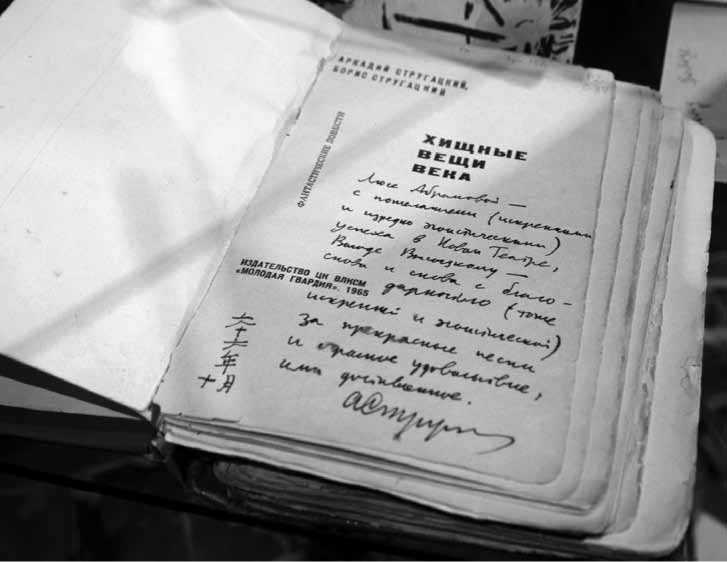 АРКАДИЙ СТРУГАЦКИЙ,
БОРИС СТРУГАЦКИЙ
ФАНТАСТИЧЕСКИЕ ПОВЕСТИ
ХИЩНЫЕ
ВЕЩИ
ВЕКА
Люсе Абрамовой —
с пожеланиями (искренними
и изрядно эгоистическими)
успеха в Новом Театре,
Володе Высоцкому —
снова и снова с благо-
дарностью (тоже
искренней и эгоистической)
за прекрасные песни
и огромное удовольствие,
ими доставленное.
ИЗДАТЕЛЬСТВО ЦК ВЛКСМ
«МОЛОДАЯ ГВАРДИЯ». 1965
六十六年
十月